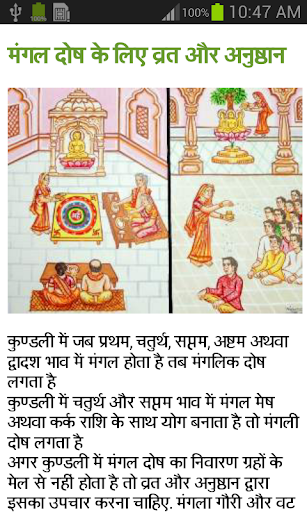 100% 10:47 AM
मंगल दोष के लिए व्रत और अनुष्ठान
कुण्डली में जब प्रथम, चतुर्थ, सप्तम, अष्टम अथवा
द्वादश भाव में मंगल होता है तब मंगलिक दोष
लगता है
कुण्डली में चतुर्थ और सप्तम भाव में मंगल मेष
अथवा कर्क राशि के साथ योग बनाता है तो मंगली
दोष लगता है
अगर कुण्डली में मंगल दोष का निवारण ग्रहों के
मेल से नही होता है तो व्रत और अनुष्ठान द्वारा
इसका उपचार करना चाहिए. मंगला गौरी और वट